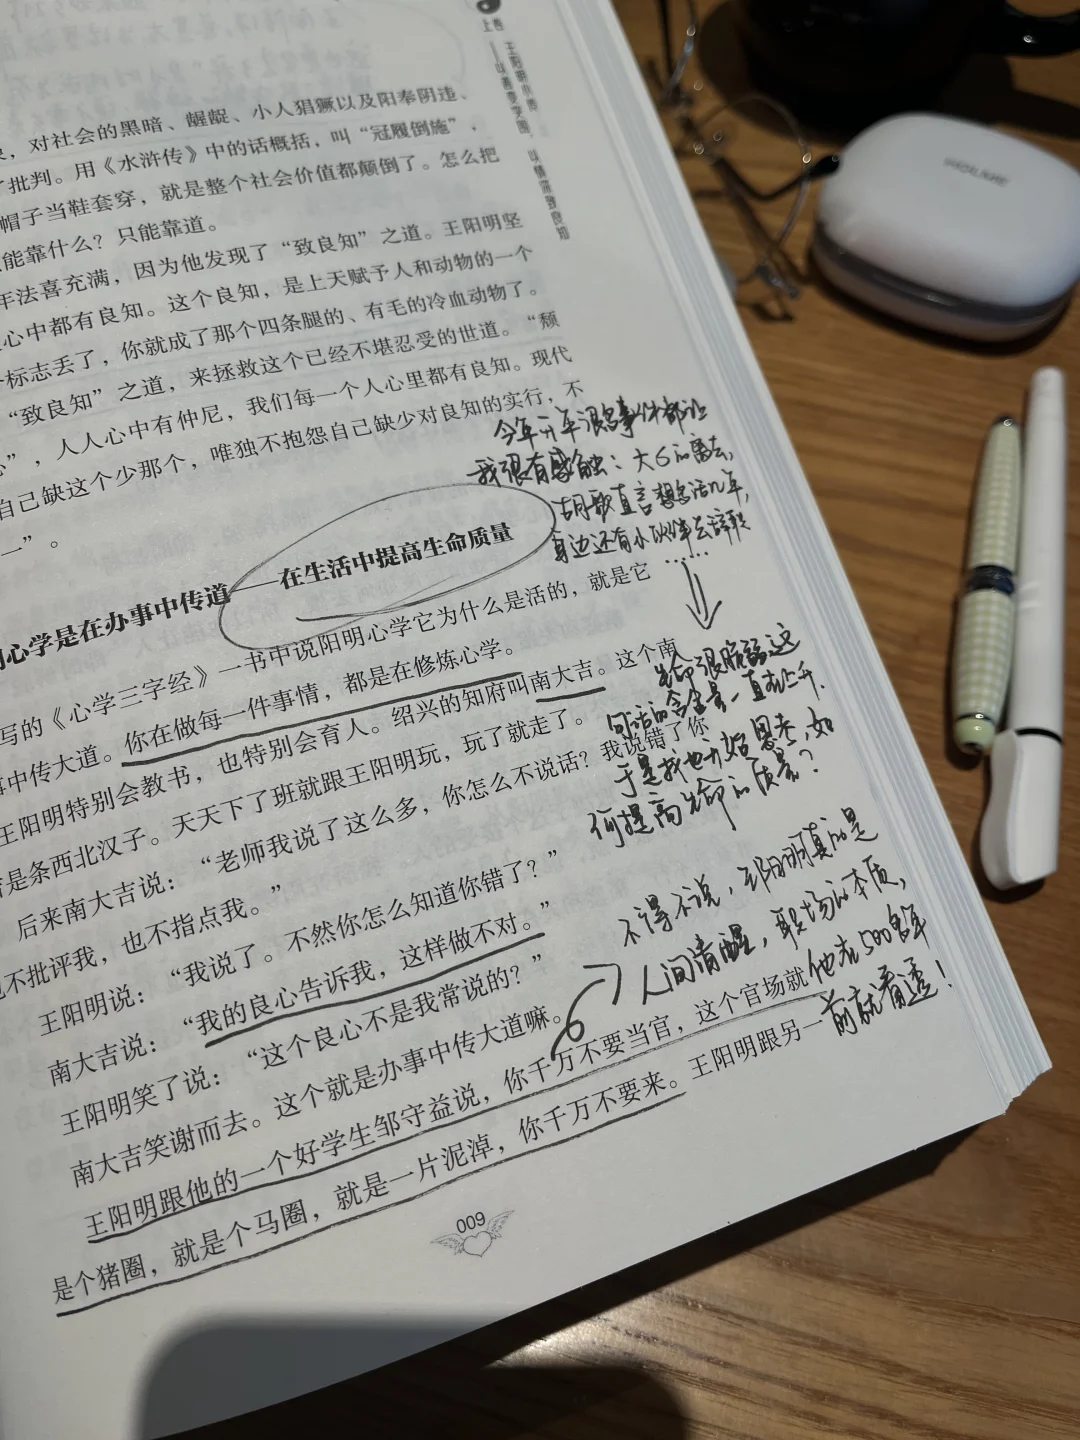 上卷
王阳明小传
对社会的黑暗、龌龊、小人猖獗以及阳奉阴违、
批判。用《水浒传》中的话概括，叫“冠履倒施”，
帽子当鞋套穿，就是整个社会价值都颠倒了。怎么把
能靠什么？只能靠道。
年法喜充满，因为他发现了“致良知”之道。王阳明坚
心中都有良知。这个良知，是上天赋予人和动物的一个
标志丢了，你就成了那个四条腿的、有毛的冷血动物了。
“致良知”之道，来拯救这个已经不堪忍受的世道。“颓
”，人人心中有仲尼，我们每一个人心里都有良知。现代
自己缺这个少那个，唯独不抱怨自己缺少对良知的实行，不
一”。
今年开年很多事件都让
我很有感触：大S的离去，
胡歌直言想多活几年，
身边还有小伙伴去辞职
……
心学是在办事中传道——在生活中提高生命质量
写的《心学三字经》一书中说阳明心学它为什么是活的，就是它
事中传大道。你在做每一件事情，都是在修炼心学。
王阳明特别会教书，也特别会育人。绍兴的知府叫南大吉。这个南
是条西北汉子。天天下了班就跟王阳明玩，玩了就走了。
后来南大吉说：“老师我说了这么多，你怎么不说话？我说错了你
不批评我，也不指点我。”
王阳明说：“我说了。不然你怎么知道你错了？”
南大吉说：“我的良心告诉我，这样做不对。”
王阳明笑了说：“这个良心不是我常说的？”
南大吉笑谢而去。这个就是办事中传大道嘛。
王阳明跟他的一个好学生邹守益说，你千万不要当官，这个官场就
是个猪圈，就是个马圈，就是一片泥淖，你千万不要来。王阳明跟另一
生命很脆弱这
句话的含金量一直在上升，
于是我也开始思考，如
何提高生命的质量？
不得不说，王阳明真的是
人间清醒，职场的本质，
他在500多年
前就看透！
009